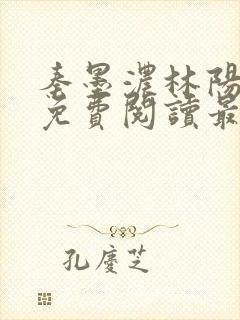 秦墨濃林陽
免費閱讀最
孔慶芝